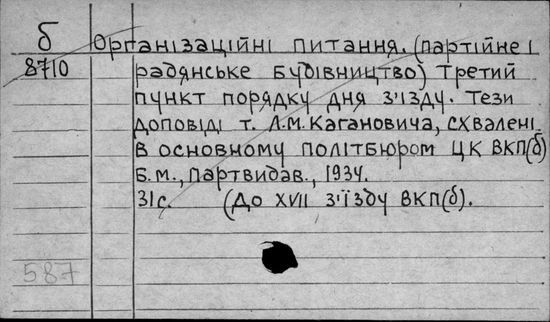 б Організаційні питання. (партійне і
8710 радянське будівництво) Третий
пункт порядку дня з'їзду. Тези
доповіді т. Л.М. Кагановича, схвалені
в основному політбюром ЦК ВКП(б)
Б.м., Партвидав., 1934.
31 с. (До XVII з'їзду ВКП(б).
587